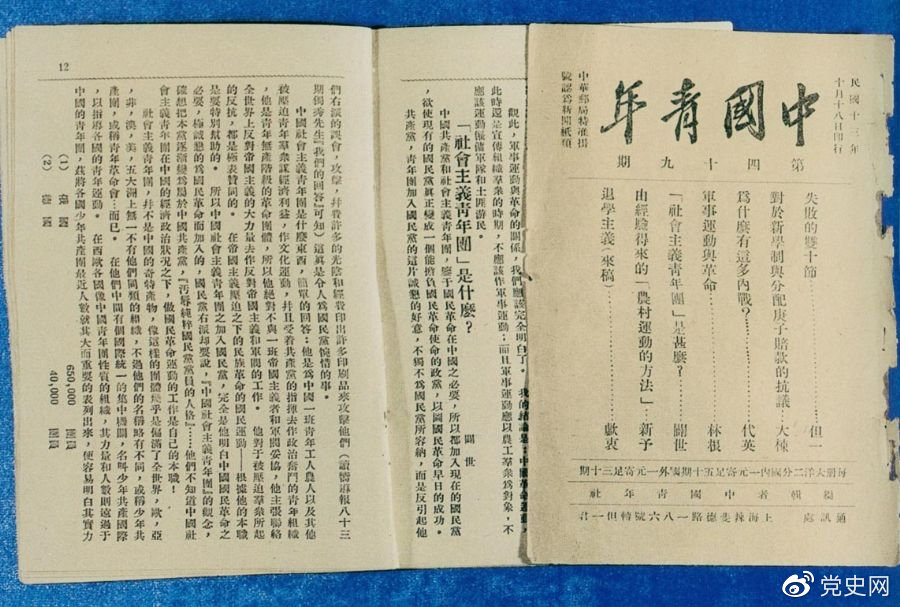 民國十三年
十月十八日印行
中國青年
第四十九期
中華郵局特准掛
號認爲新聞紙類
失敗的雙十節……但一
對於新學制與分配庚子賠款的抗議……大棟
爲什麼有這多內戰？……代英
軍事運動與革命……林根
「社會主義青年團」是甚麼？……關世
由經驗得來的「農村運動的方法」……新予
退學主義（來稿）……獻衷
每册大洋二分國內一元寄足五十期國外一元寄足三十期
編輯者中國青年社
通訊處 上海辣斐德路一八六號轉但一君
觀此，軍事運動與革命的關係，我們應該完全明白了。
此時還是宣傳組織羣衆的時期，不應該作軍事運動；而且軍事運動應以農工羣衆爲對象，不
應該運動僱傭軍隊和土匪游民。
「社會主義青年團」是什麼？
關世
中國共產黨和社會主義青年團，鑒于國民革命在中國之必要，所以都加入現在的國民黨
，欲使現有的國民黨眞正變成一個能擔負國民革命使命的政黨，以圖國民革命早日的成功。
共產黨，青年團加入國民黨的這片誠懇的好意，不獨不爲國民黨所容納，而是反引起他
12
們右派的誤會，攻擊，幷費許多的光陰和經費印出許多印刷品來攻擊他們（讀嚮導報八十三
期獨秀先生『我們的回答』可知）這眞是令人爲國民黨惋惜的事。
中國社會主義青年團是什麼東西，簡單的回答：他是爲中國一班青年工人農人以及其他
被壓迫青年羣衆謀經濟利益，作文化運動，幷且受着共產黨的指揮去作政治奮鬥的青年組織
，他是青年無產階級的革命團體，所以他絕對不與一班帝國主義者和軍閥妥協，他主張聯絡
全世界上反對帝國主義的大力量去作反對帝國主義和軍閥的工作。他對于被壓迫羣衆所起
的反抗，都是極表贊同的。在帝國主義壓迫之下的民族革命的國民運動——根據他的本職
是要特別幫助的。所以中國社會主義青年團之加入國民黨，完全是他明白中國國民革命之
必要，極誠懇的爲國民革命而加入的，國民黨右派却要說，『中國社會主義青年團』的觀念，
確想把本黨逐漸變爲屬於中國共產黨，『汚辱純粹國民黨員的人格』……他們不知道中國社
會主義青年團在中國的經濟政治狀况之下，做國民革命運動的工作是自己的本職！
社會主義青年團，幷不是中國的奇特產物，像這樣的團體幾乎是偏滿了全世界，歐，亞
，非，澳，美，五大洲上無一不有他們同類的組織，不過他們的名稱略有不同，或稱少年共
產團，或稱青年革命會……而已。在他們中間有個國際統一的集中機關，名呌少年共產國際
，以指導各國的青年運動。在西歐各國像中國青年團性質的組織，其力量和人數則遠過于
中國的青年團，茲將各國少年共產團最近人數就其大而重要的表列出來，便容易明白其實力
（1） 俄國 650,000 團員
（2） 德國 40,000 團員
党史网